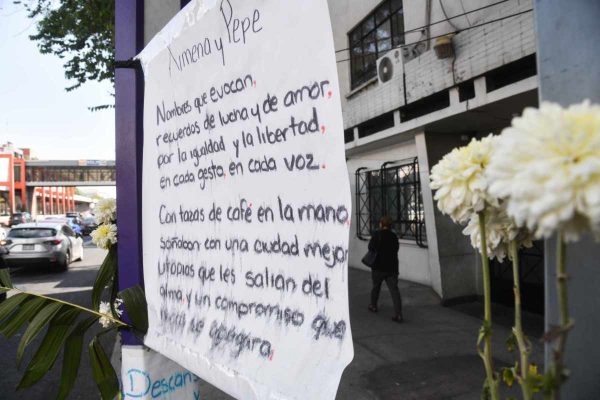 Ximena y Pepe
Nombres que evocan,
recuerdos de lucha y de amor,
por la igualdad y la libertad,
en cada gesto, en cada voz.
Con tazas de café en la mano
soñaban con una ciudad mejor
utopías que les salían del
alma y un compromiso que
se apagara.
Descans